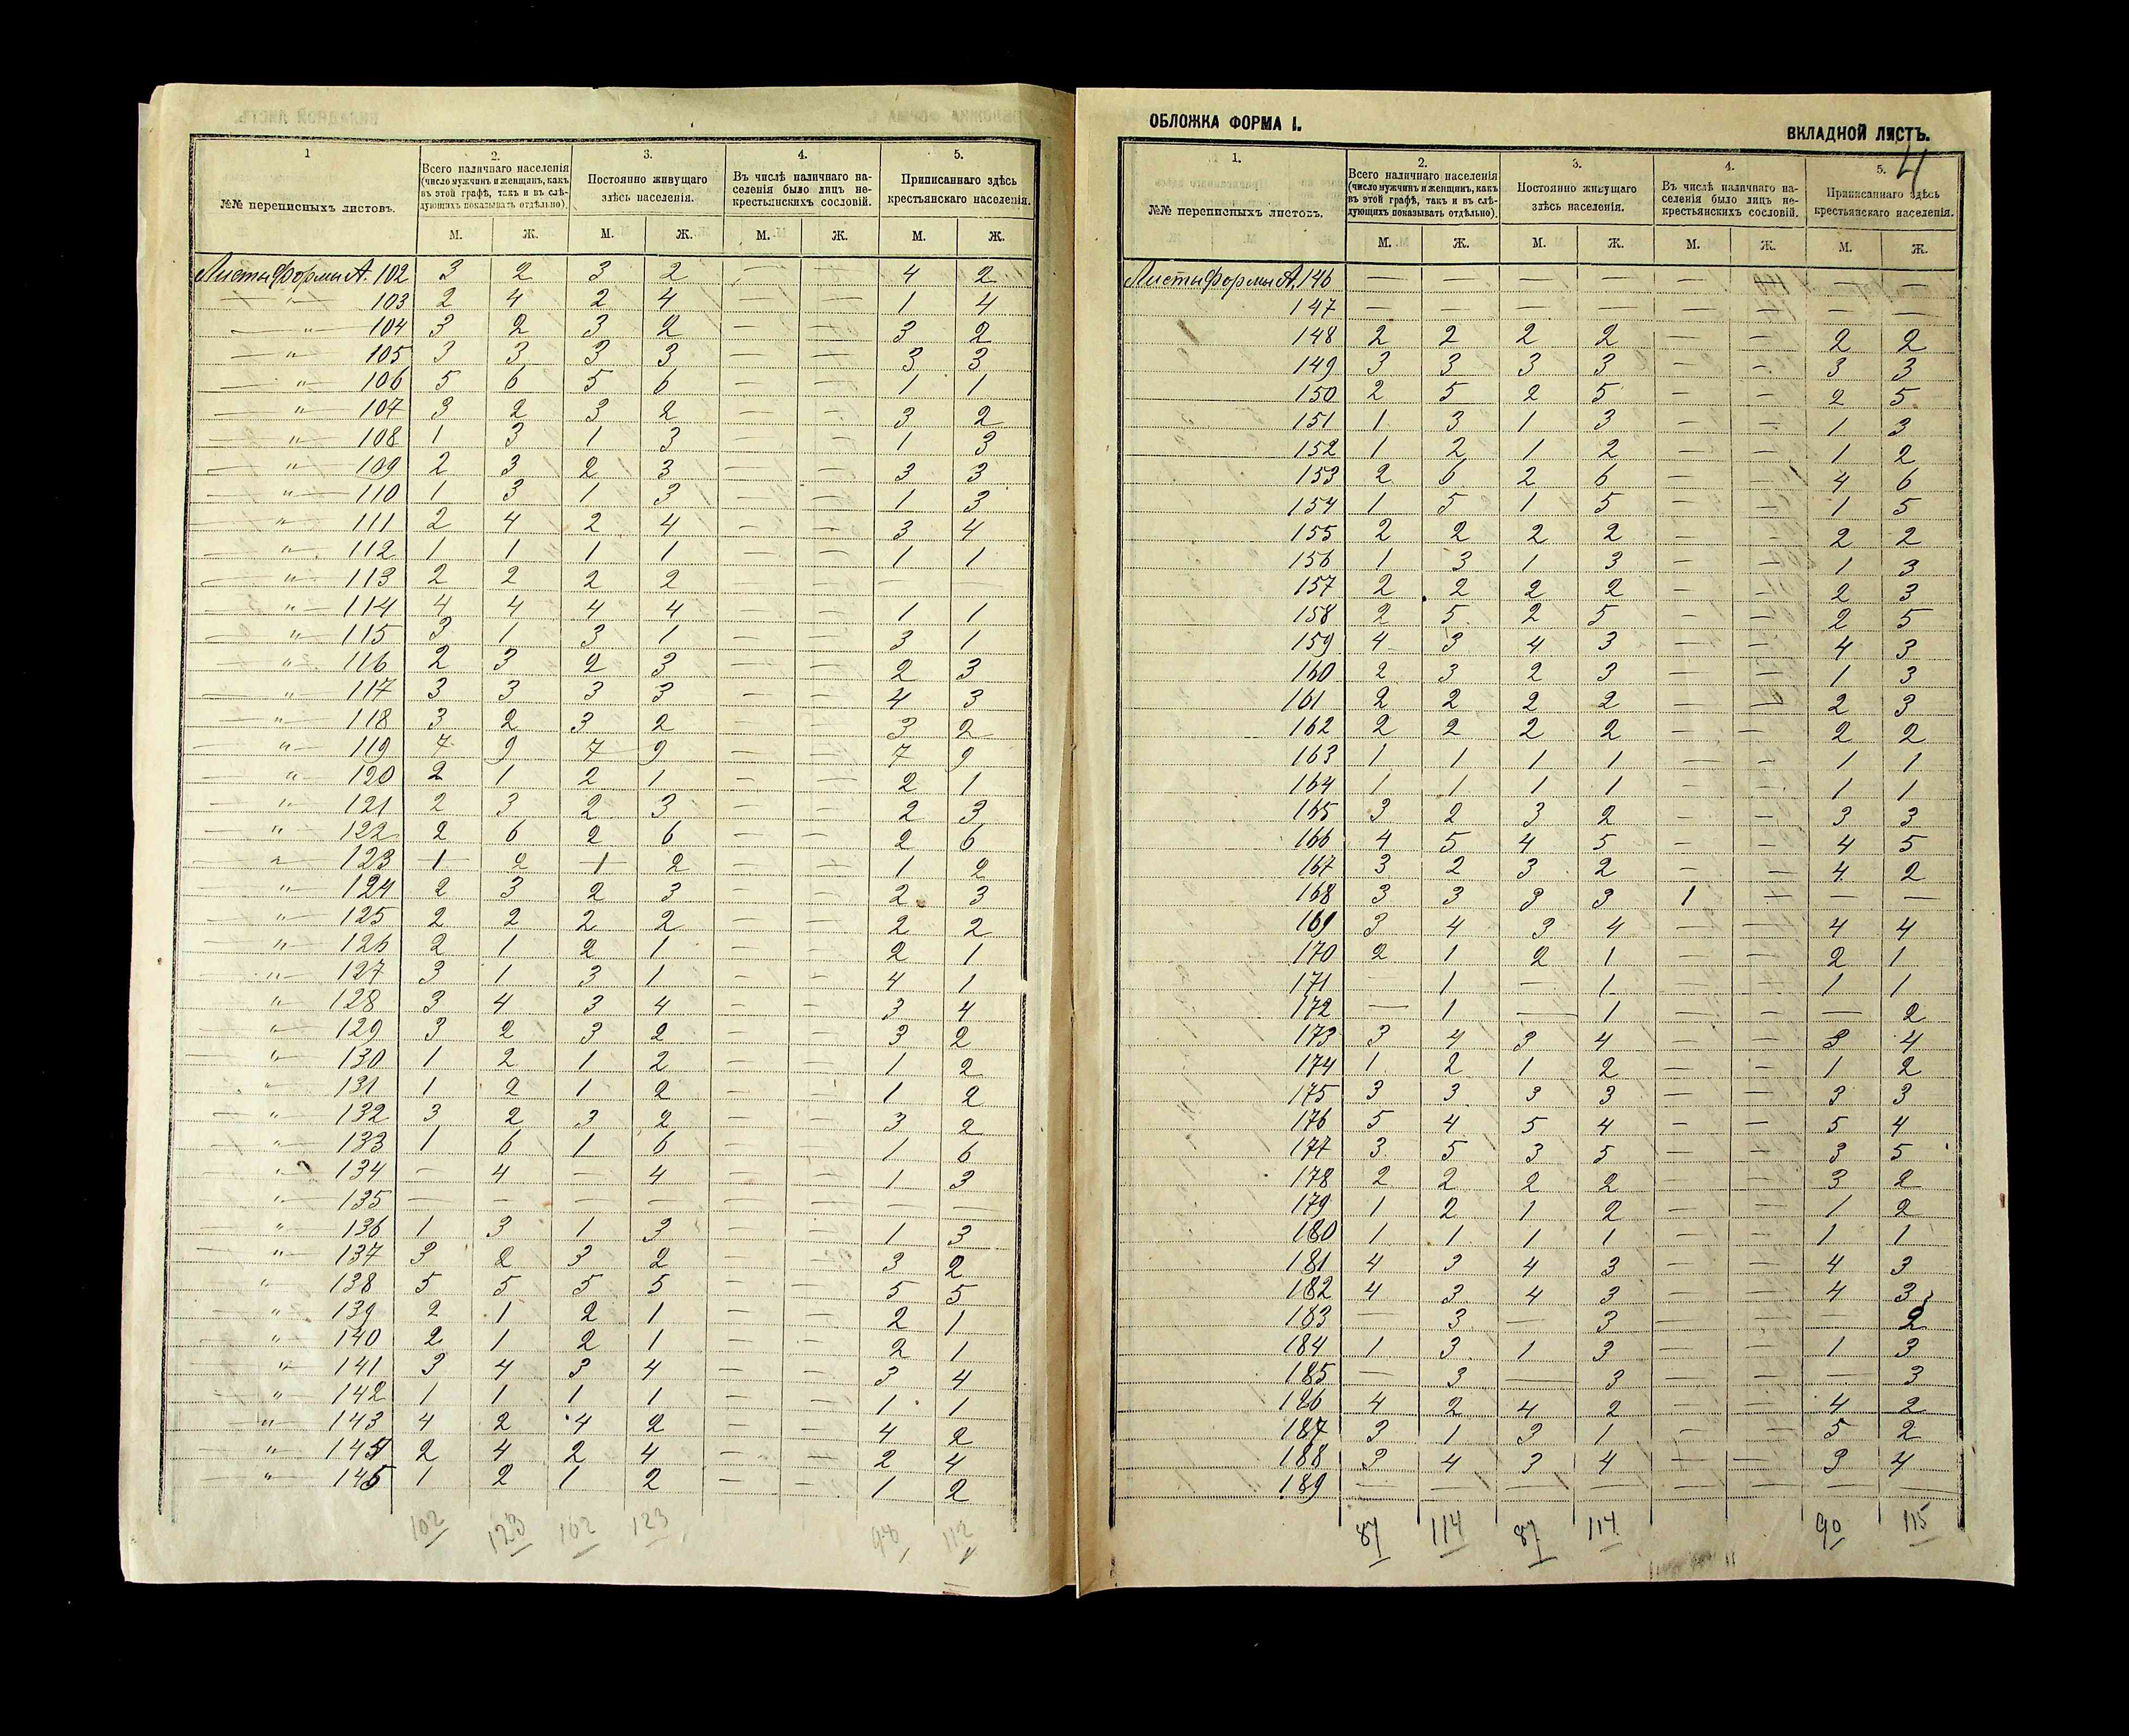 1
2.
3.
4.
5.
№№ переписныхъ листовъ.
Всего наличнаго населенія
(число мужчинъ и женщинъ, какъ
въ этой графѣ, такъ и въ слѣ-
дующихъ показывать отдѣльно).
Постоянно живущаго
здѣсь населенія.
Въ числѣ наличнаго на-
селенія было лицъ не-
крестьянскихъ сословій.
Приписаннаго здѣсь
крестьянскаго населенія.
М. Ж. М. Ж. М. Ж. М. Ж.
Листы формы А. 102 3 2 3 2 — — 4 2
— " — 103 2 4 2 4 — — 1 4
— " — 104 3 2 3 2 — — 3 2
— " — 105 3 3 3 3 — — 3 3
— " — 106 5 6 5 6 — — 1 1
— " — 107 3 2 3 2 — — 3 2
— " — 108 1 3 1 3 — — 1 3
— " — 109 2 3 2 3 — — 3 3
— " — 110 1 3 1 3 — — 1 3
— " — 111 2 4 2 4 — — 3 4
— " — 112 1 1 1 1 — — 1 1
— " — 113 2 2 2 2 — — — —
— " — 114 4 4 4 4 — — 1 1
— " — 115 3 1 3 1 — — 3 1
— " — 116 2 3 2 3 — — 2 3
— " — 117 3 3 3 3 — — 4 3
— " — 118 3 2 3 2 — — 3 2
— " — 119 7 9 7 9 — — 7 9
— " — 120 2 1 2 1 — — 2 1
— " — 121 2 3 2 3 — — 2 3
— " — 122 2 6 2 6 — — 2 6
— " — 123 1 2 1 2 — — 1 2
— " — 124 2 3 2 3 — — 2 3
— " — 125 2 2 2 2 — — 2 2
— " — 126 2 1 2 1 — — 2 1
— " — 127 3 1 3 1 — — 4 1
— " — 128 3 4 3 4 — — 3 4
— " — 129 3 2 3 2 — — 3 2
— " — 130 1 2 1 2 — — 1 2
— " — 131 1 2 1 2 — — 1 2
— " — 132 3 2 3 2 — — 3 2
— " — 133 1 6 1 6 — — 1 6
— " — 134 — 4 — 4 — — 1 3
— " — 135 — — — — — — — —
— " — 136 1 3 1 3 — — 1 3
— " — 137 3 2 3 2 — — 3 2
— " — 138 5 5 5 5 — — 5 5
— " — 139 2 1 2 1 — — 2 1
— " — 140 2 1 2 1 — — 2 1
— " — 141 3 4 3 4 — — 3 4
— " — 142 1 1 1 1 — — 1 1
— " — 143 4 2 4 2 — — 4 2
— " — 144 2 4 2 4 — — 2 4
— " — 145 1 2 1 2 — — 1 2
102 123 102 123 112
ОБЛОЖКА ФОРМА I.
ВКЛАДНОЙ ЛИСТЪ.
4
1.
2.
3.
4.
5.
№№ переписныхъ листовъ.
Всего наличнаго населенія
(число мужчинъ и женщинъ, какъ
въ этой графѣ, такъ и въ слѣ-
дующихъ показывать отдѣльно).
Постоянно живущаго
здѣсь населенія.
Въ числѣ наличнаго на-
селенія было лицъ не-
крестьянскихъ сословій.
Приписаннаго здѣсь
крестьянскаго населенія.
М. Ж. М. Ж. М. Ж. М. Ж.
Листы формы А. 146 — — — — — — — —
147 — — — — — — — —
148 2 2 2 2 — — 2 2
149 3 3 3 3 — — 3 3
150 2 5 2 5 — — 2 5
151 1 3 1 3 — — 1 3
152 1 2 1 2 — — 1 2
153 2 6 2 6 — — 4 6
154 1 5 1 5 — — 1 5
155 2 2 2 2 — — 2 2
156 1 3 1 3 — — 1 3
157 2 2 2 2 — — 2 3
158 2 5 2 5 — — 2 5
159 4 3 4 3 — — 4 3
160 2 3 2 3 — — 1 3
161 2 2 2 2 — — 2 3
162 2 2 2 2 — — 2 2
163 1 1 1 1 — — 1 1
164 1 1 1 1 — — 1 1
165 3 2 3 2 — — 3 3
166 4 5 4 5 — — 4 5
167 3 2 3 2 — — 4 2
168 3 3 3 3 1 — — —
169 3 4 3 4 — — 4 4
170 2 1 2 1 — — 2 1
171 — 1 — 1 — — 1 1
172 — 1 — 1 — — — 2
173 3 4 3 4 — — 3 4
174 1 2 1 2 — — 1 2
175 3 3 3 3 — — 3 3
176 5 4 5 4 — — 5 4
177 3 5 3 5 — — 3 5
178 2 2 2 2 — — 3 2
179 1 2 1 2 — — 1 2
180 1 1 1 1 — — 1 1
181 4 3 4 3 — — 4 3
182 4 3 4 3 — — 4 3
183 — 3 — 3 — — — 2
184 1 3 1 3 — — 1 3
185 — 3 — 3 — — — 3
186 4 2 4 2 — — 4 2
187 3 1 3 1 — — 5 2
188 3 4 3 4 — — 3 4
189 — — — — — — — —
87 114 87 114 90 115